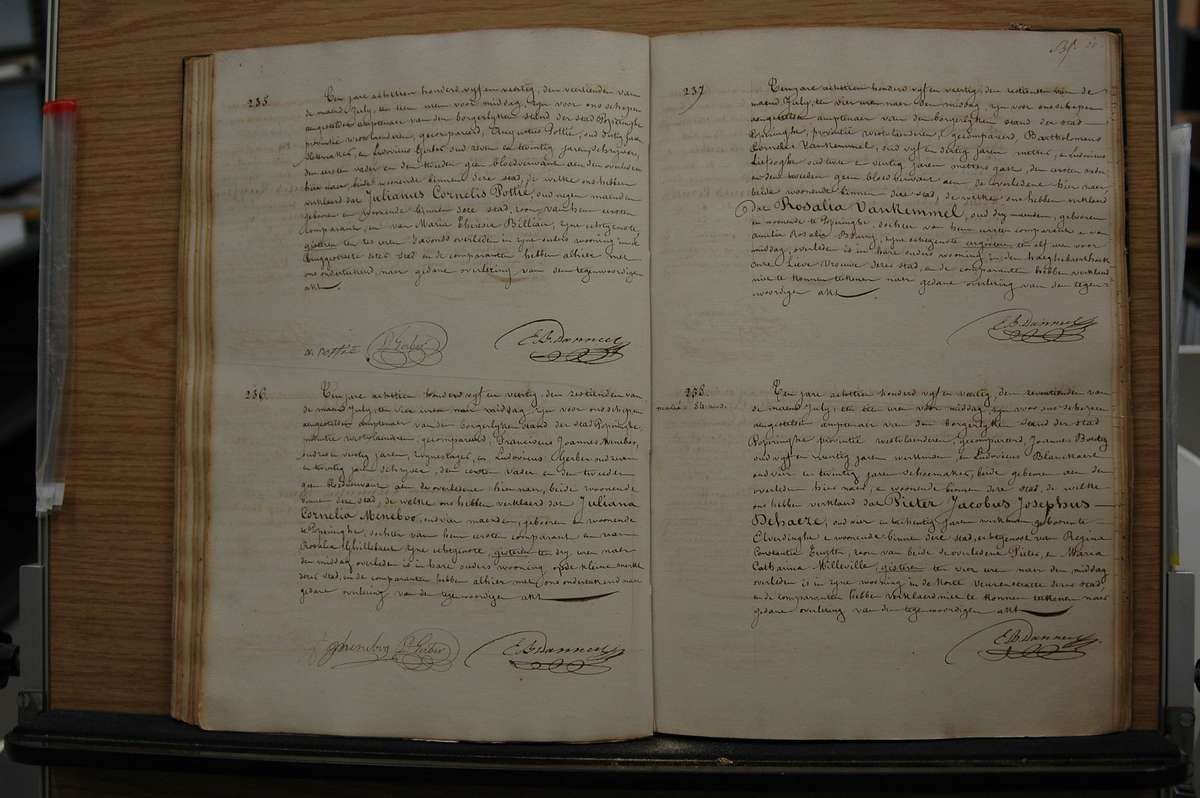 235.
Ten jare achttien honderd vyf en veertig, den veertienden van
de maend July, ten tien uren voor middag, zyn voor ons schepen
aengestelden amptenaer van den borgerlyken stand der stad Poperinghe
provintie westvlaenderen, gecompareerd, Augustus Pottié, oud dertig jaren
en Ludovicus Gerber oud zeven en twintig jaren schryver,
den eersten vader en den tweeden geen bloedverwant aen den overleden
hier naer, beide woonende binnen deze stad, de welke ons hebben
verklaerd dat Julianus Cornelis Pottié, oud negen maenden
geboren en woonende binnen deze stad, zoon van hem eersten
comparant, en van Maria Theresia Billiau, zyne echtgenote,
gisteren ten zes uren s'avonds overleden in zyne ouders wooning in de
Bruggestraete dezer stad en de comparanten hebben alhier met
ons onderteekend, naer gedane overlezing van den tegenwoordigen
akt.
A. Pottié L. Gerber E. B. Danneel
236.
Ten jare achttien honderd vyf en veertig, den zestienden van
de maend July, ten vier uren naer middag, zyn voor ons schepen
aengestelden amptenaer van den borgerlyken stand der stad Poperinghe,
provintie westvlaenderen, gecompareerd, Franciscus Joannes Meneboo,
oud zes en veertig jaren, en Ludovicus Gerber oud zeven
en twintig jaren schryver, den eersten vader en den tweeden
geen bloedverwant aen de overledene hier naer, beide woonende
binnen deze stad, de welke ons hebben verklaerd dat Juliana
Cornelia Meneboo, oud vier maenden, geboren en woonende
te Poperinghe, dochter van hem eersten comparant en van
Rosalia Ghillebaert zyne echtgenote, gisteren ten dry uren naer
den middag overleden is in hare ouders wooning, op de kleine markt
dezer stad, en de comparanten hebben alhier met ons onderteekend naer
gedane overlezing van de tegenwoordigen akt
Meneboo L. Gerber E. B. Danneel
237
Ten jare achttien honderd vyf en veertig, den zestienden van de
maend July, ten vier uren naer den middag, zyn voor ons schepen
aengestelden amptenaer van den borgerlyken stand der stad
Poperinghe, provintie westvlaenderen, gecompareerd, Bartholomeus
Cornelis Vankemmel, oud vyf en dertig jaren metser, en Ludovicus
Liefooghe oud twee en veertig jaren metsers gast, den eersten vader
en den tweeden geen bloedverwant aen de overledene hier naer,
beide woonende binnen deze stad, de welke ons hebben verklaerd
dat Rosalia Vankemmel, oud dry maenden, geboren
en woonende te Poperinghe, dochter van hem eersten comparant en van
Amelia Rosalia Boury, zyne echtgenote eergisteren ten elf uren voor
middag, overleden is in hare ouders wooning, in den
Onze Lieve Vrouwe dezer stad, en de comparanten hebben verklaerd
niet te konnen teekenen naer gedane overlezing van den tegen-
woordigen akt
E. B. Danneel
238.
Ten jare achttien honderd vyf en veertig, den zeventienden van
de maend July, ten een uren voor middag, zyn voor ons schepen
aengestelden amptenaer van den borgerlyke stand der stad
Poperinghe provintie westvlaenderen, gecompareerd, Joannes
oud vyf en veertig jaren werkman, en Ludovicus Blanckaert
oud vier en twintig jaren schoemaker, beide gebueren aen den
overleden hier naer, en woonende binnen deze stad, de welke
ons hebben verklaerd dat Pieter Jacobus Josephus
Dehaeze, oud vier en tachentig jaren werkman geboren te
Elverdinghe en woonende binnen deze stad, echtgenoot van Regina
Constantia zoon van beide de overledene Pieter, en Maria
Catharina Milleville, gisteren ten vier uren naer den middag
overleden is in zyne wooning in de Korte Veurnestraete dezer stad
en de comparanten hebben verklaerd niet te konnen teekenen naer
gedane overlezing van de tegenwoordigen akt
E. B. Danneel